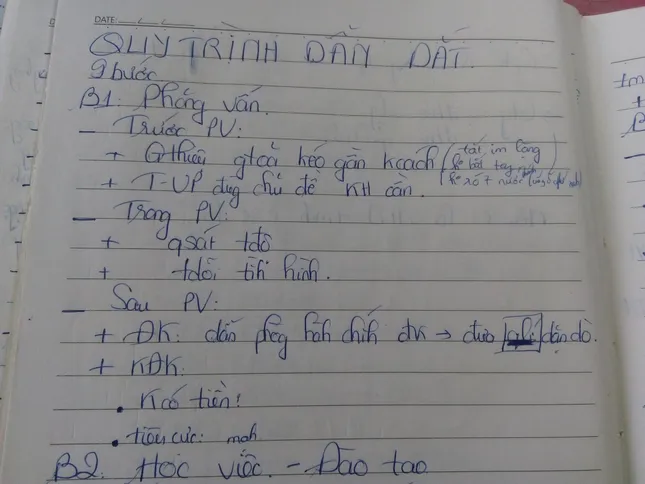 DATE:
QUY TRÌNH DẪN DẮT.
9 bước
B1: Phỏng vấn.
- Trước PV:
+ Gthiệu gtcá kéo gần kcách (tắt, im lặng
+ T-UP đúg chủ đề KH cần.
- Trong PV:
+ qsát tđộ
+ tdõi tìh hình.
- Sau PV:
+ ĐK: dẫn phòg hàh chíh đk → đưa dặn dò.
+ KĐK:
• K có tiền:
• tiêu cực: mah
B2. Học việc. - Đào tạo